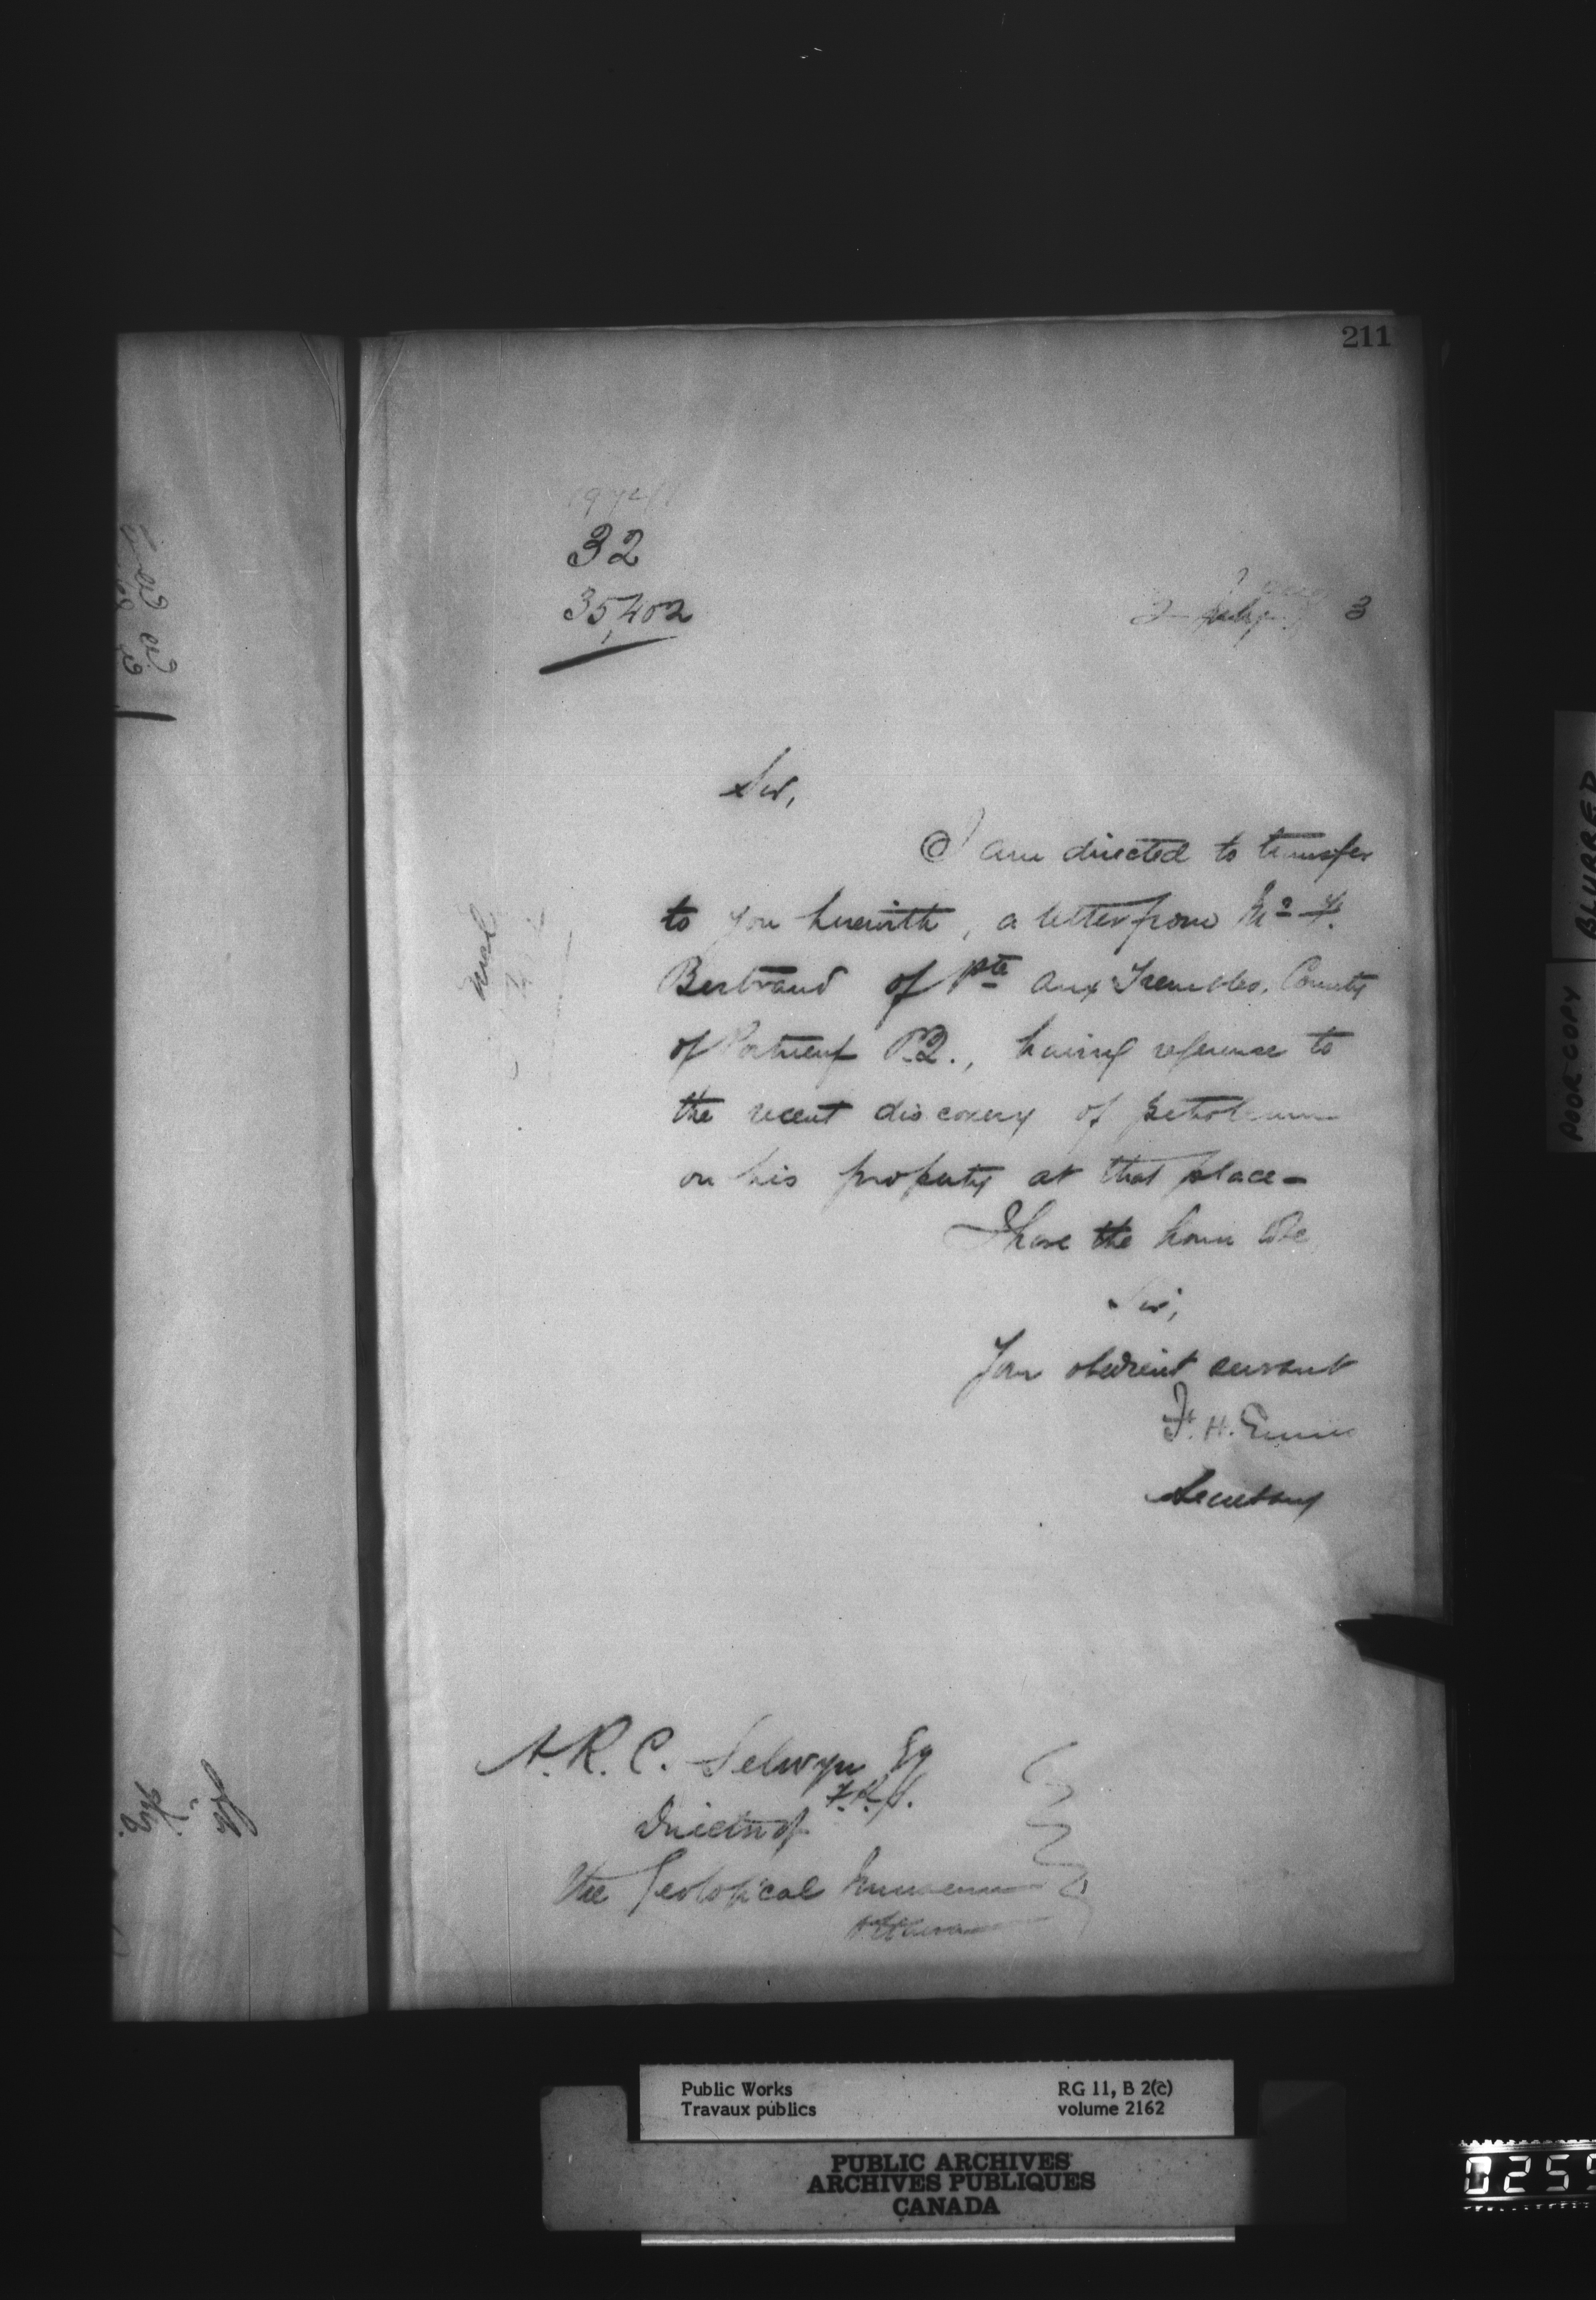 211
32
35,402
2 July 3
Sir,
I am directed to transfer
to you herewith, a letter from Mr F.
Bertrand of Pte aux Trembles, County
of Portneuf P.Q., having reference to
the recent discovery of petroleum
on his property at that place-
I have the honor to be
Sir,
Your obedient servant
F. H. Ennis
Secretary
A. R. C. Selwyn Esq
F.R.S.
Director of
the Geological Museum
Ottawa
BLURRED
POOR COPY
Public Works
Travaux publics
RG 11, B 2(c)
volume 2162
PUBLIC ARCHIVES
ARCHIVES PUBLIQUES
CANADA
0255